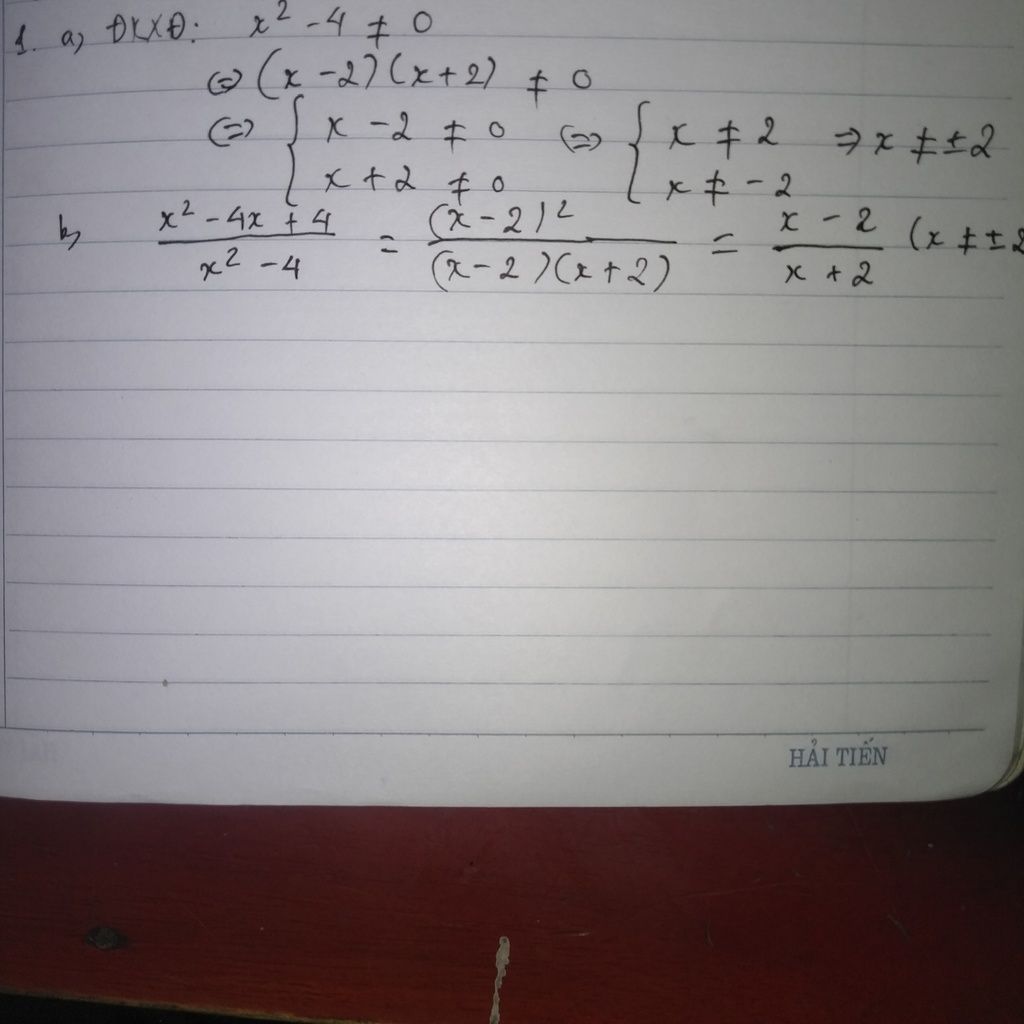 1. a, ĐKXĐ: x² - 4 ≠ 0
⇔ (x - 2)(x + 2) ≠ 0
⇔ { x - 2 ≠ 0 ⇔ { x ≠ 2 ⇒ x ≠ ± 2
x + 2 ≠ 0 x ≠ - 2
b, (x² - 4x + 4)/(x² - 4) = (x - 2)²/((x - 2)(x + 2)) = (x - 2)/(x + 2) (x ≠ ± 2
HẢI TIẾN